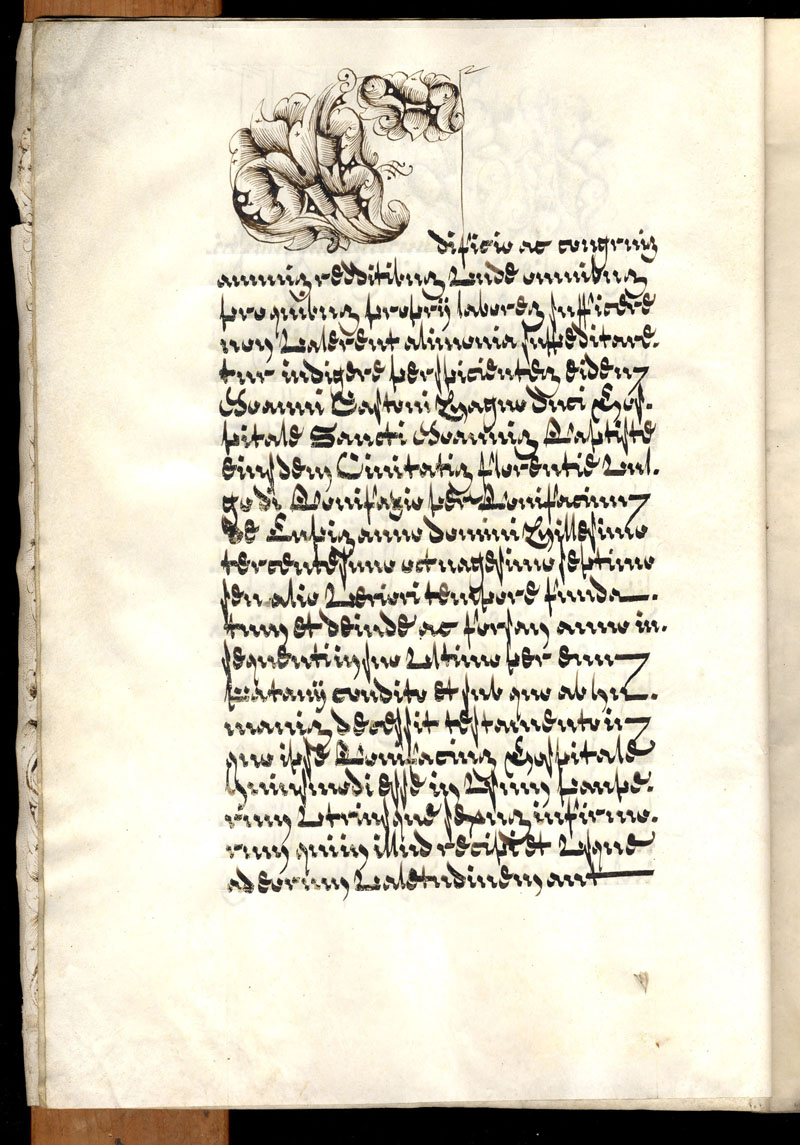 Edificio ac congruis
annuis redditibus Unde omnibus
pro quibus proprij labores sufficere
non Valerent alimonia suppeditare-
tur indigere perspicientes eidem
Joanni Gastoni Magno Duci Hos-
pitale Sancti Joannis Baptiste
eiusdem Civitatis Florentie Vul-
go di Bonifazio per Bonifacium
de Lupis anno Domini Millesimo
tercentesimo octuagesimo septimo
seu alio Veriori tempore funda-
tum et deinde ac forsan anno in-
sequenti in suo Ultimo per eum
Patavij condito et sub quo ab hu-
manis decessit testamento in
quo ipse Bonifacius Hospitale
huiusmodi esse in Usum Paupe-
rum Utriusque sexus infirmo-
rum qui in illud recipi et Usque
ad eorum Valetudinem aut